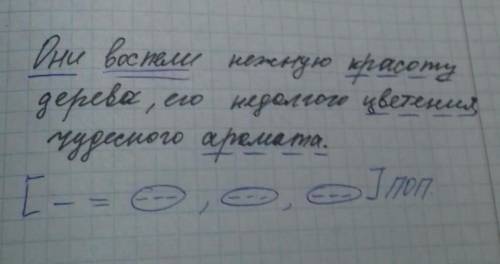 Они воспели нежную красоту
дерева, его недолгого цветения,
чудесного аромата.
[ — = (---), (---), (---) ] ПОП.